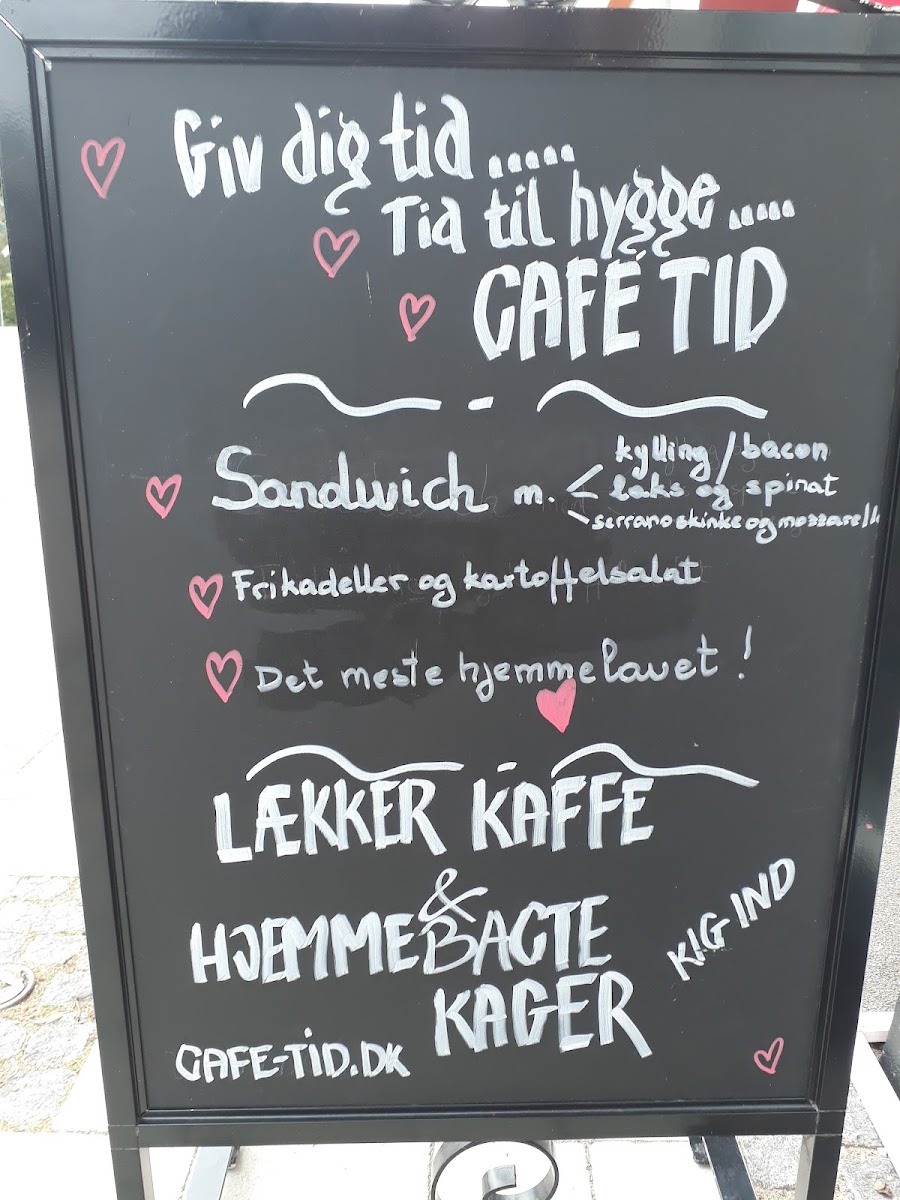 Giv dig tid .....
Tid til hygge .....
CAFÉ TID
Sandwich m. kylling/bacon
laks og spinat
serranoskinke og mozzarella
Frikadeller og kartoffelsalat
Det meste hjemmelavet !
LÆKKER KAFFE
&
HJEMMEBAGTE
KAGER
KIG IND
CAFE-TID.DK